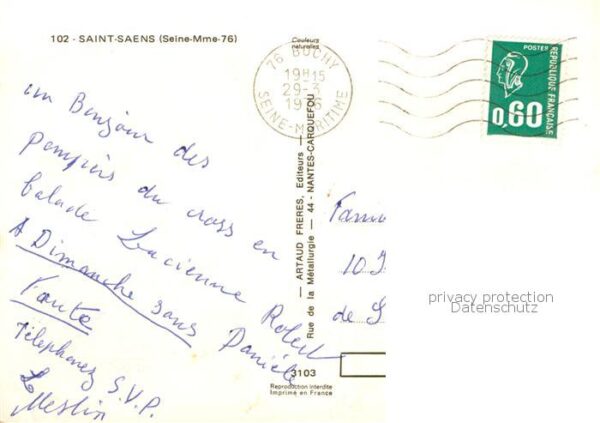 102 - SAINT-SAENS (Seine-Mme-76)
Couleurs
naturelles
76 BUCHY
19H15
29-3
1976
SEINE-MARITIME
POSTES
0,60
REPUBLIQUE FRANÇAISE
un Bonjour des
pompiers du cross en
balade Lucienne Robert
A Dimanche sans Danièle
faute
Téléphonez S.V.P.
Le Meslin
ARTAUD FRERES, Editeurs
Rue de la Métallurgie — 44 - NANTES-CARQUEFOU
3103
Reproduction interdite
Imprimé en France
Fami
10
de
privacy protection
Datenschutz